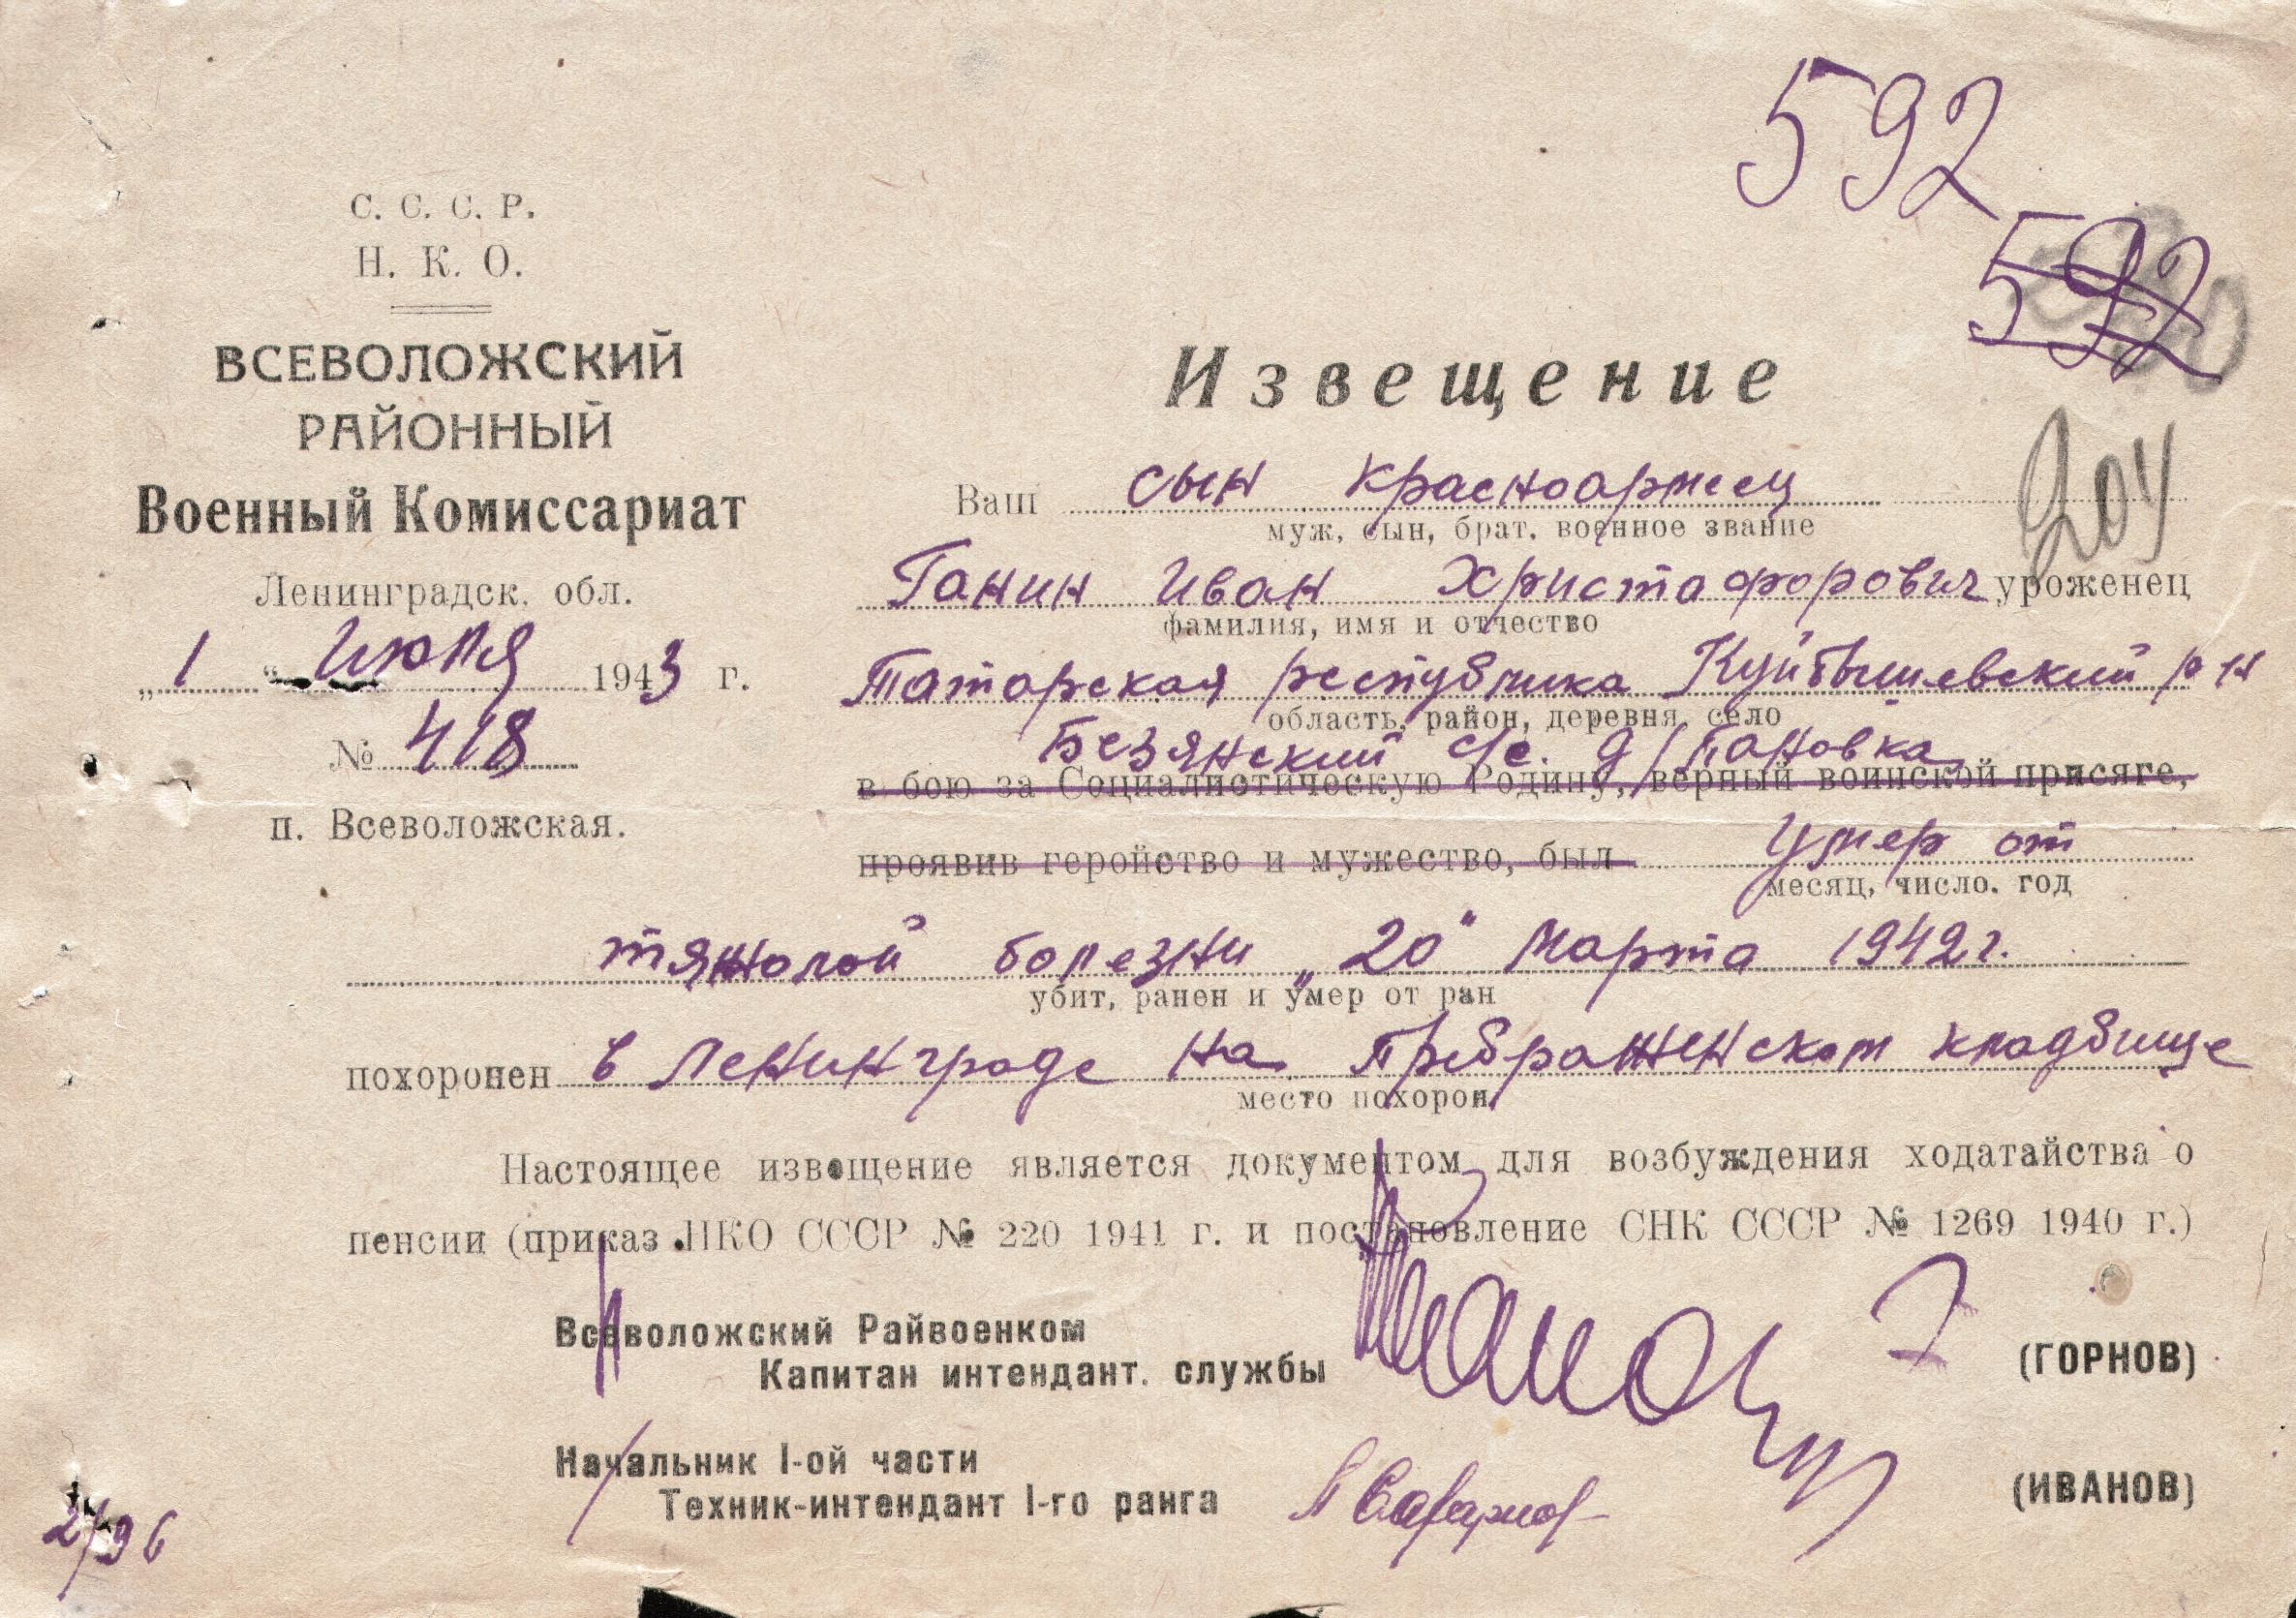 592
592
204
С. С. С. Р.
Н. К. О.
ВСЕВОЛОЖСКИЙ
РАЙОННЫЙ
Военный Комиссариат
Ленинградск. обл.
„1“ Июля 1943 г.
№ 418
п. Всеволожская.
Извещение
Ваш сын красноармеец
муж, сын, брат, военное звание
Ганин Иван Христафорович уроженец
фамилия, имя и отчество
Татарская республика Куйбышевский р-н
область, район, деревня, село
Безянский с/с. д/Пановка
в бою за Социалистическую Родину, верный воинской присяге,
проявив геройство и мужество, был Умер от
месяц, число, год
тяжолой болезни „20“ Марта 1942 г.
убит, ранен и умер от ран
похоронен в Ленинграде на Пребраженском кладбище
место похорон
Настоящее извещение является документом для возбуждения ходатайства о
пенсии (приказ НКО СССР № 220 1941 г. и постановление СНК СССР № 1269 1940 г.)
Всеволожский Райвоенком
Капитан интендант. службы (ГОРНОВ)
Начальник I-ой части
Техник-интендант I-го ранга (ИВАНОВ)
2/96